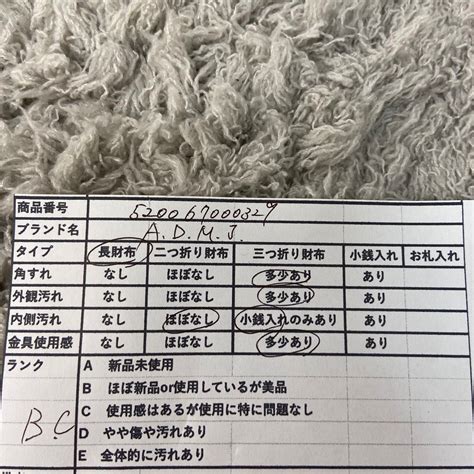 商品番号 520067000329
ブランド名 A.D.M.J.
タイプ 長財布 二つ折り財布 三つ折り財布 小銭入れ お札入れ
角すれ なし ほぼなし 多少あり あり
外観汚れ なし ほぼなし 多少あり あり
内側汚れ なし ほぼなし 小銭入れのみあり あり
金具使用感 なし ほぼなし 多少あり あり
ランク A 新品未使用
B ほぼ新品or使用しているが美品
B.C C 使用感はあるが使用に特に問題なし
D やや傷や汚れあり
E 全体的に汚れあり